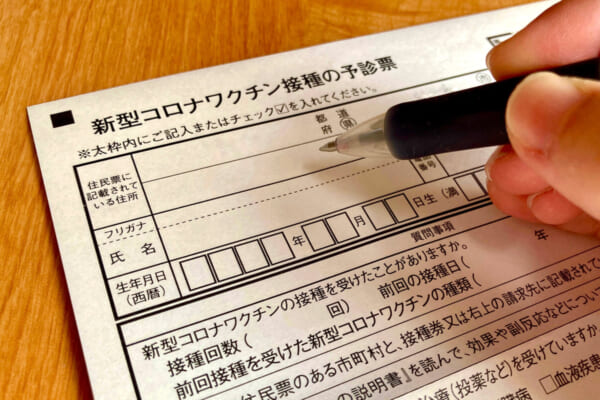 新型コロナワクチン接種の予診票
※太枠内にご記入またはチェック☑を入れてください。
住民票に
記載されて
いる住所
都 道
府 県
番号
フリガナ
氏 名
生年月日
(西暦)
年 月 日生 (満
質問事項
新型コロナワクチンの接種を受けたことがありますか。
接種回数( 回) 前回の接種日( 年
前回接種を受けた新型コロナワクチンの種類(
住民票のある市町村と、接種券又は右上の請求先に記載されて
の説明書』を読んで、効果や副反応などについ
治療(投薬など)を受けていますか
□血液疾患